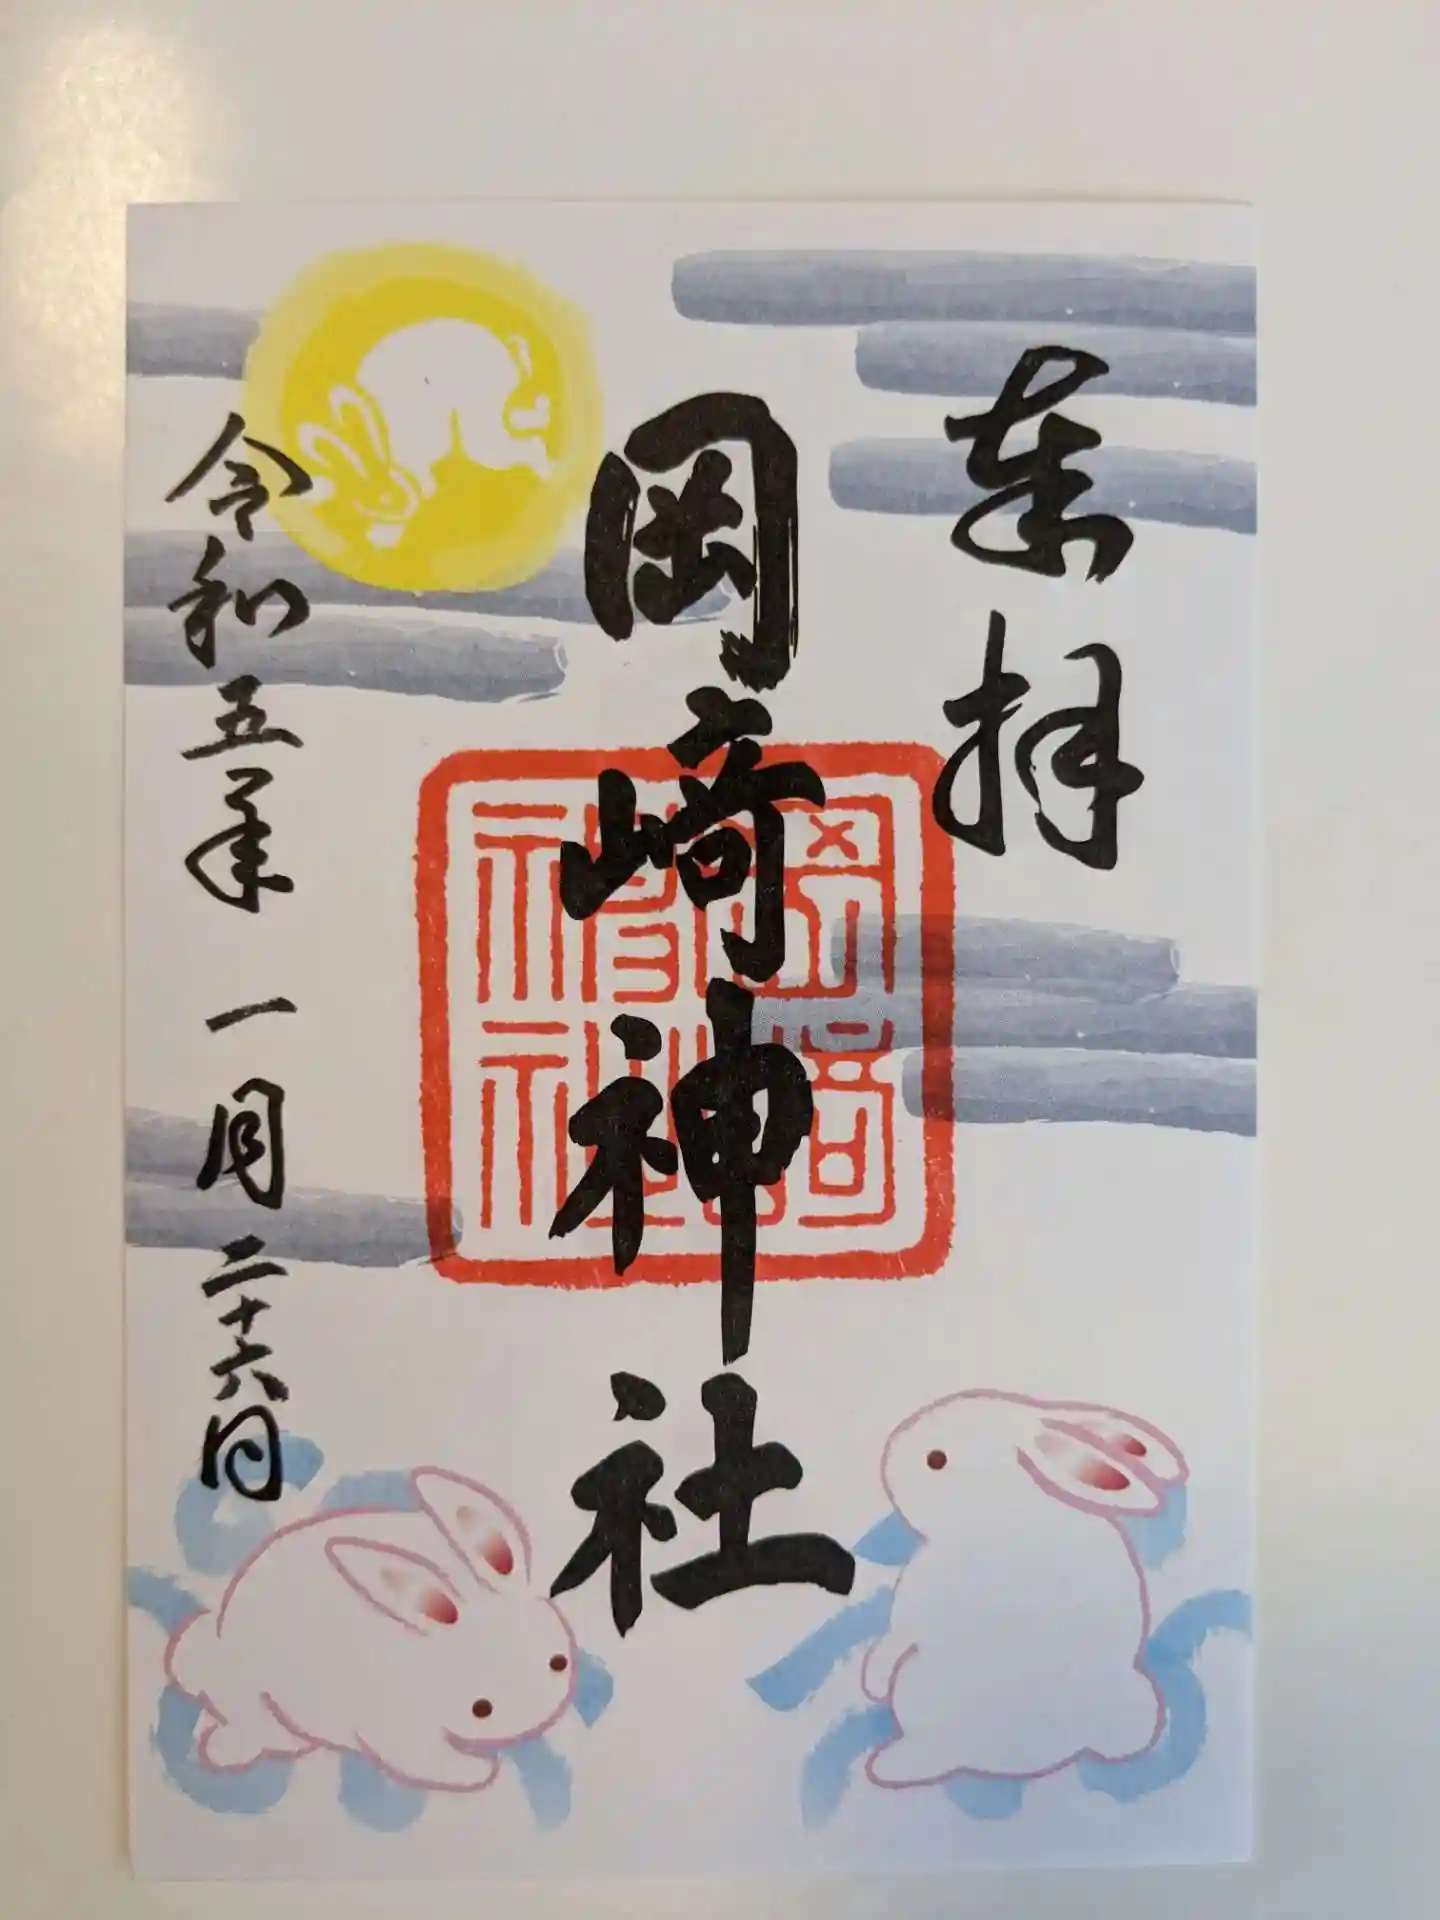 奉拝
岡崎神社
岡崎神社
令和五年 一月二十六日